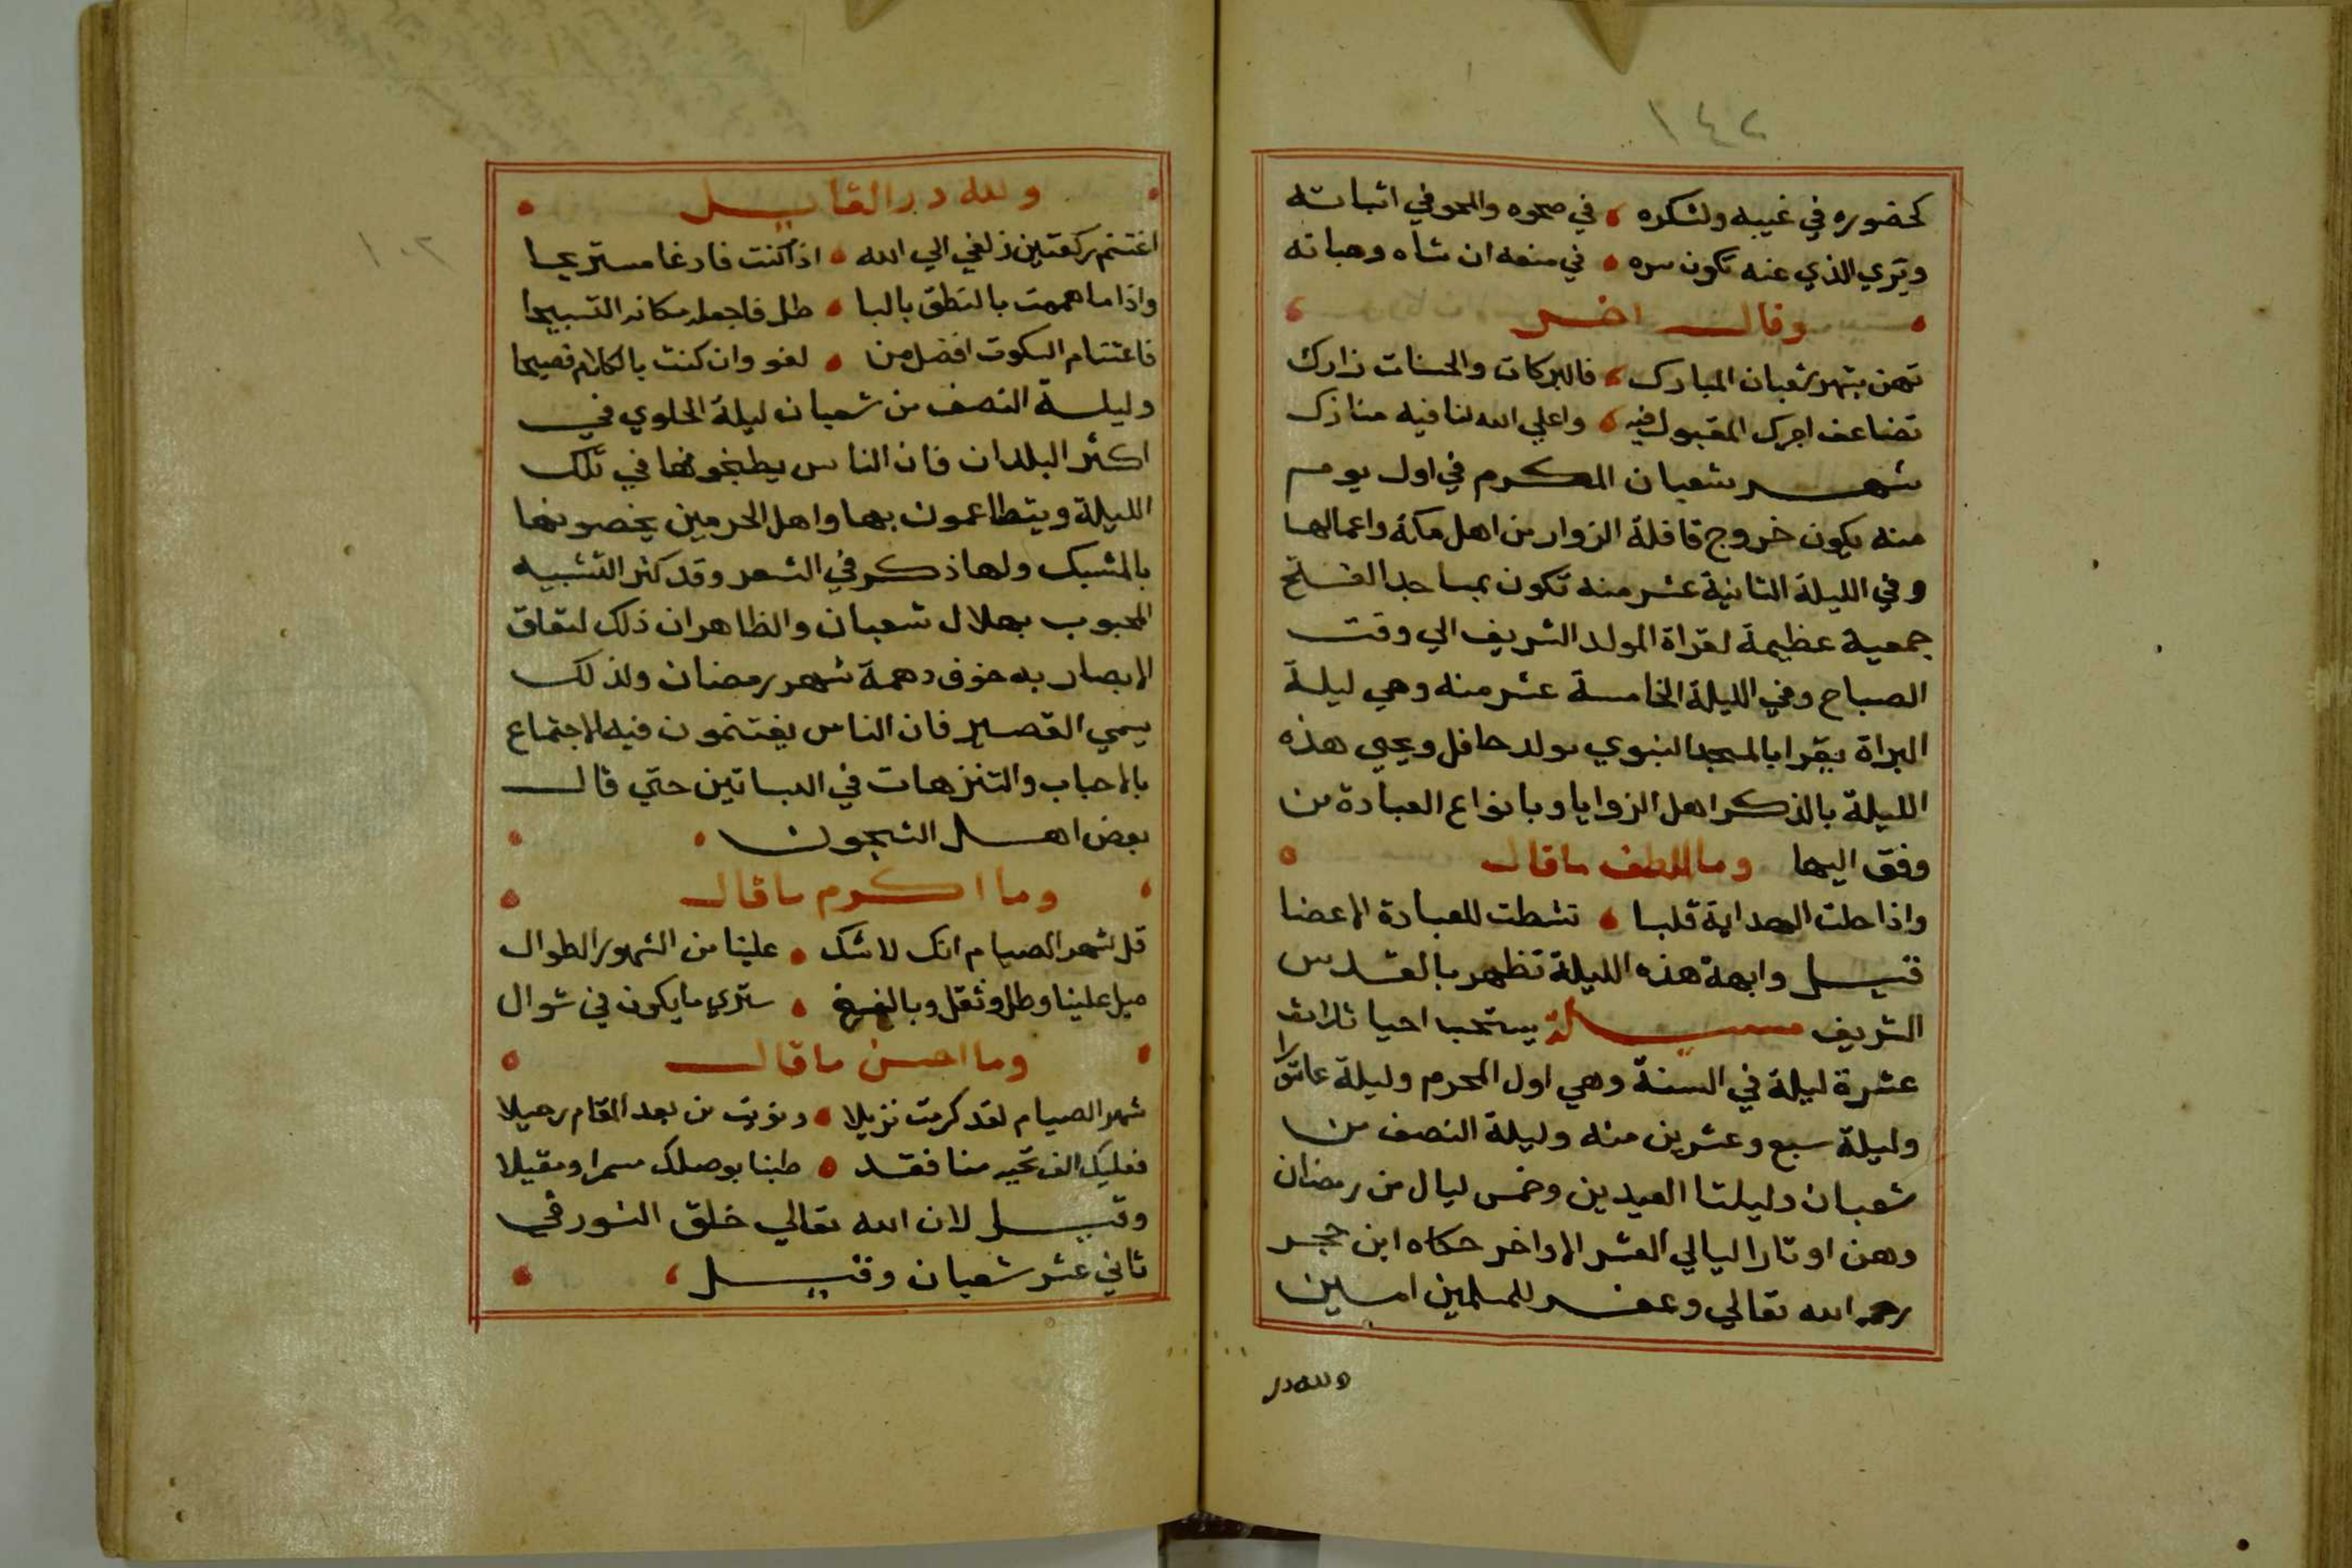 ١٤٢
كحضوره في غيبه ولشكره في صحوه والمحو في اثباته
ويري الذي عنه تكون سره في منعه ان شاه وهباته
وقال اخر
تهن بشهر شعبان المبارك فالبركات والحسنات زارك
تضاعف اجرك المقبول فيه واعلي الله لنا فيه منارك
شهر شعبان المكرم في اول يوم
منه يكون خروج قافلة الزوار من اهل مكة واعمالها
وفي الليلة الثانية عشر منه تكون بمساجد الفتح
جمعية عظيمة لقراة المولد الشريف الي وقت
الصباح وفي الليلة الخامسة عشر منه وهي ليلة
البراة يقرا بالمسجد النبوي مولد حافل ويحيي هذه
الليلة بالذكر اهل الزوايا وبانواع العبادة من
وفق اليها وما اللطف ما قال
واذا حلت الهداية قلبا نشطت للعبادة الاعضا
قيل وابهة هذه الليلة تظهر بالقدس
الشريف مسيلة يستحب احيا ثلاث
عشرة ليلة في السنة وهي اول المحرم وليلة عاشورا
وليلة سبع وعشرين منه وليلة النصف من
شعبان وليلتا العيدين وخمس ليال من رمضان
وهن اوتار اليالي العشر الاواخر حكاه ابن حجر
رحمه الله تعالي وغفر للمسلمين امين
ولله در
١٠٢
ولله در القايل
اغتنم ركعتين زلفي الي الله اذا كنت فارغا مستريحا
واذا ما هممت بالنطق بالبا طل فاجعل مكانه التسبيحا
فاغتنام السكوت افضل من لغو وان كنت بالكلام فصيحا
وليلة النصف من شعبان ليلة الحلوي في
اكثر البلدان فان الناس يطبخونها في تلك
الليلة ويتطاعمون بها واهل الحرمين يخصونها
بالمشبك ولها ذكر في الشعر وقد كثر التشبيه
المحبوب بهلال شعبان والظاهر ان ذلك لتعلق
الابصار به خوف دهمة شهر رمضان ولذلك
يسمي القصير فان الناس يغتنمون فيه الاجتماع
بالاحباب والتنزهات في البساتين حتي قال
بعض اهل الشجون
وما اكرم ما قال
قل لشهر الصيام انك لا شك علينا من الشهور الطوال
ميل علينا وطل وثقل وبالغ ستري ما يكون في شوال
وما احسن ما قال
شهر الصيام لقد كرمت نزيلا ونويت من بعد المقام رحيلا
فعليك الف تحية منا فقد طبنا بوصلك سمرا ومقيلا
وقيل لان الله تعالي خلق النور في
ثاني عشر شعبان وقيل